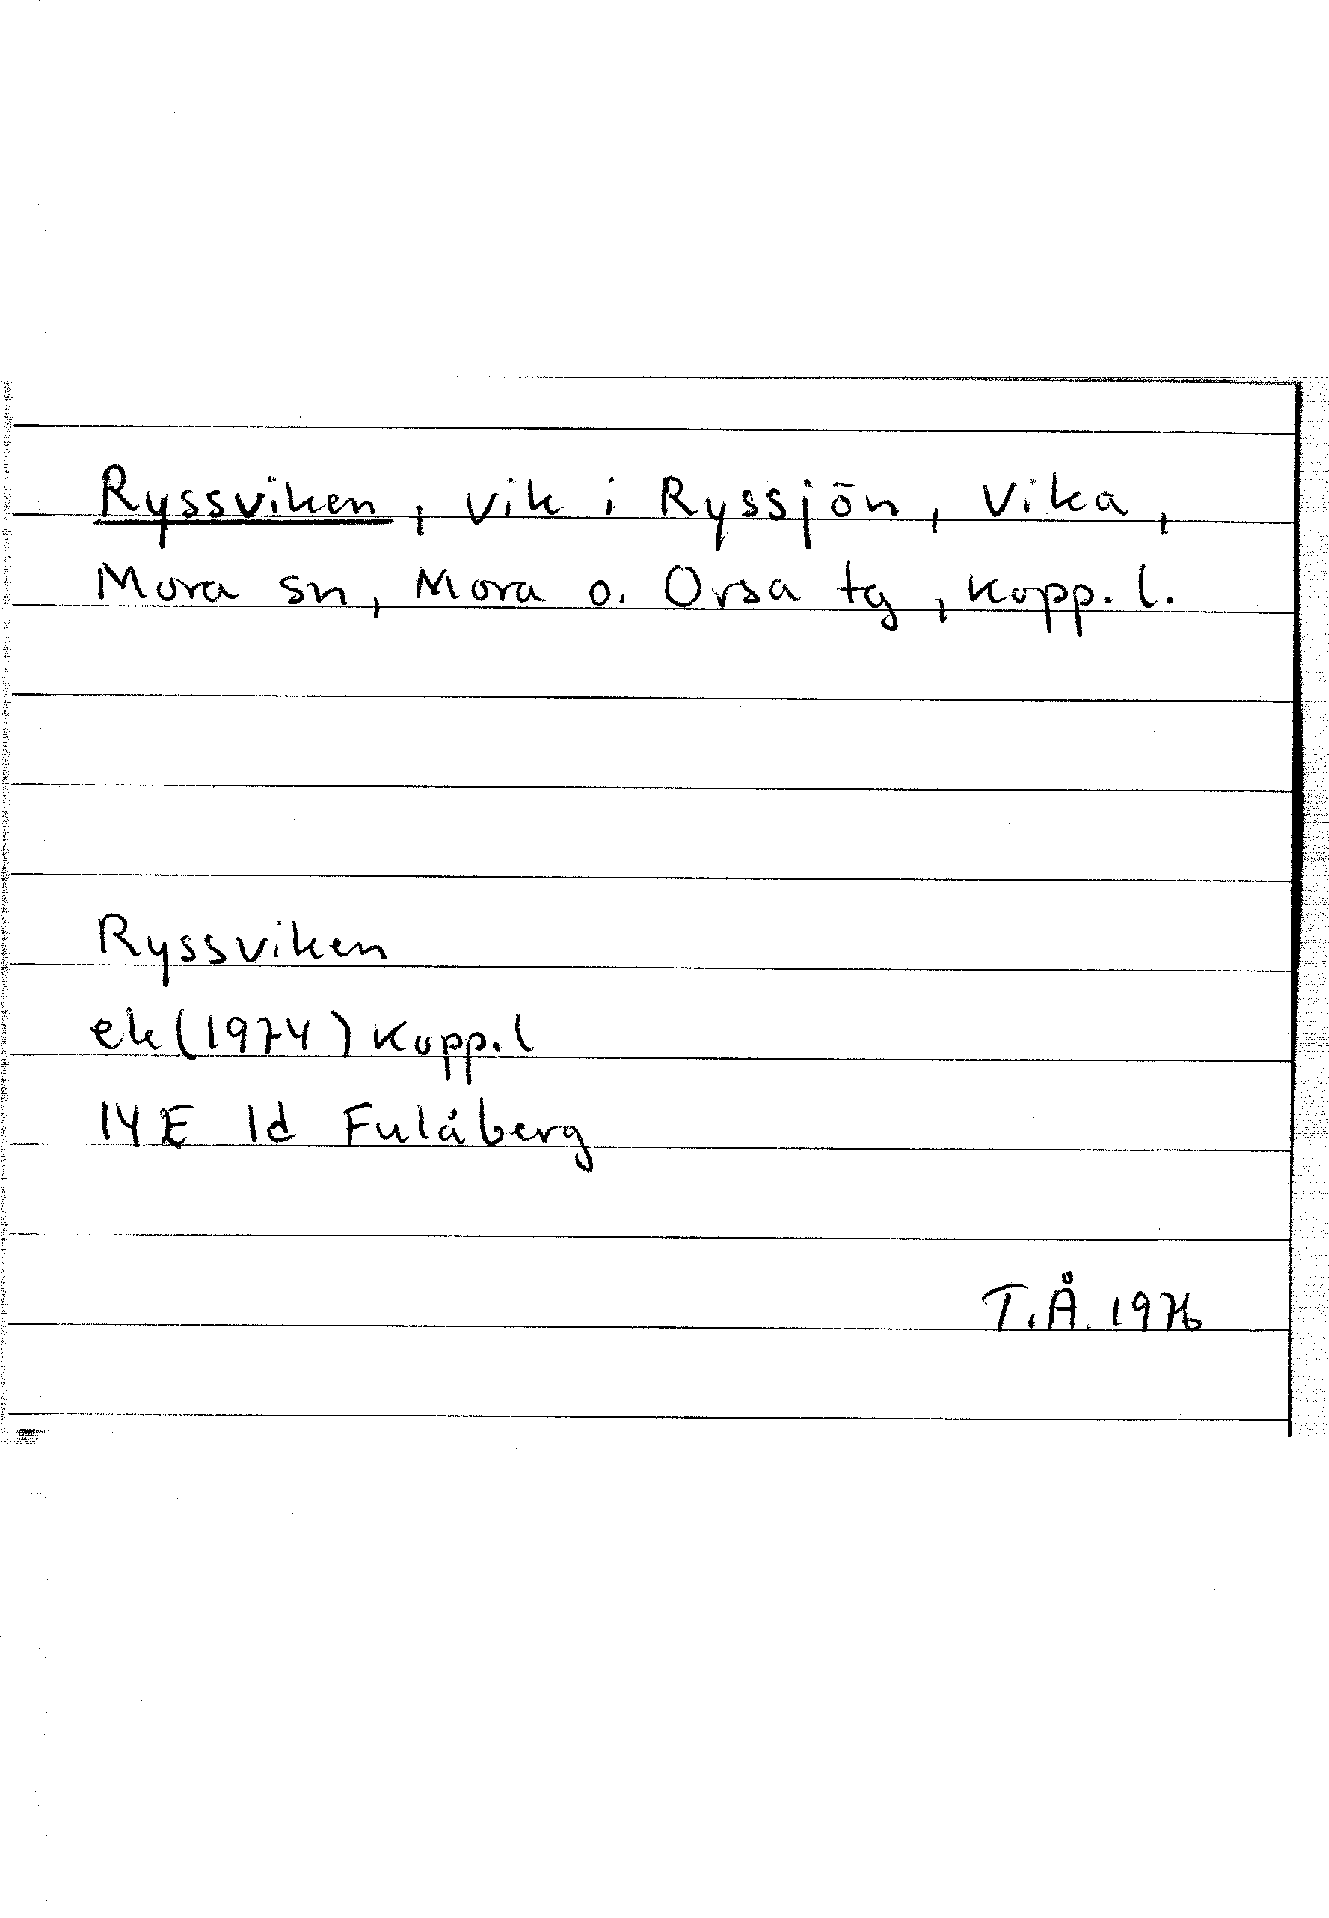 Ryssviken, vik i Ryssjön, Vika,
Mora sn, Mora o. Orsa tg, Kopp. l.
Ryssviken
ek (1974) Kopp. l
14 E 1d Fulåberg
T.Å. 1976